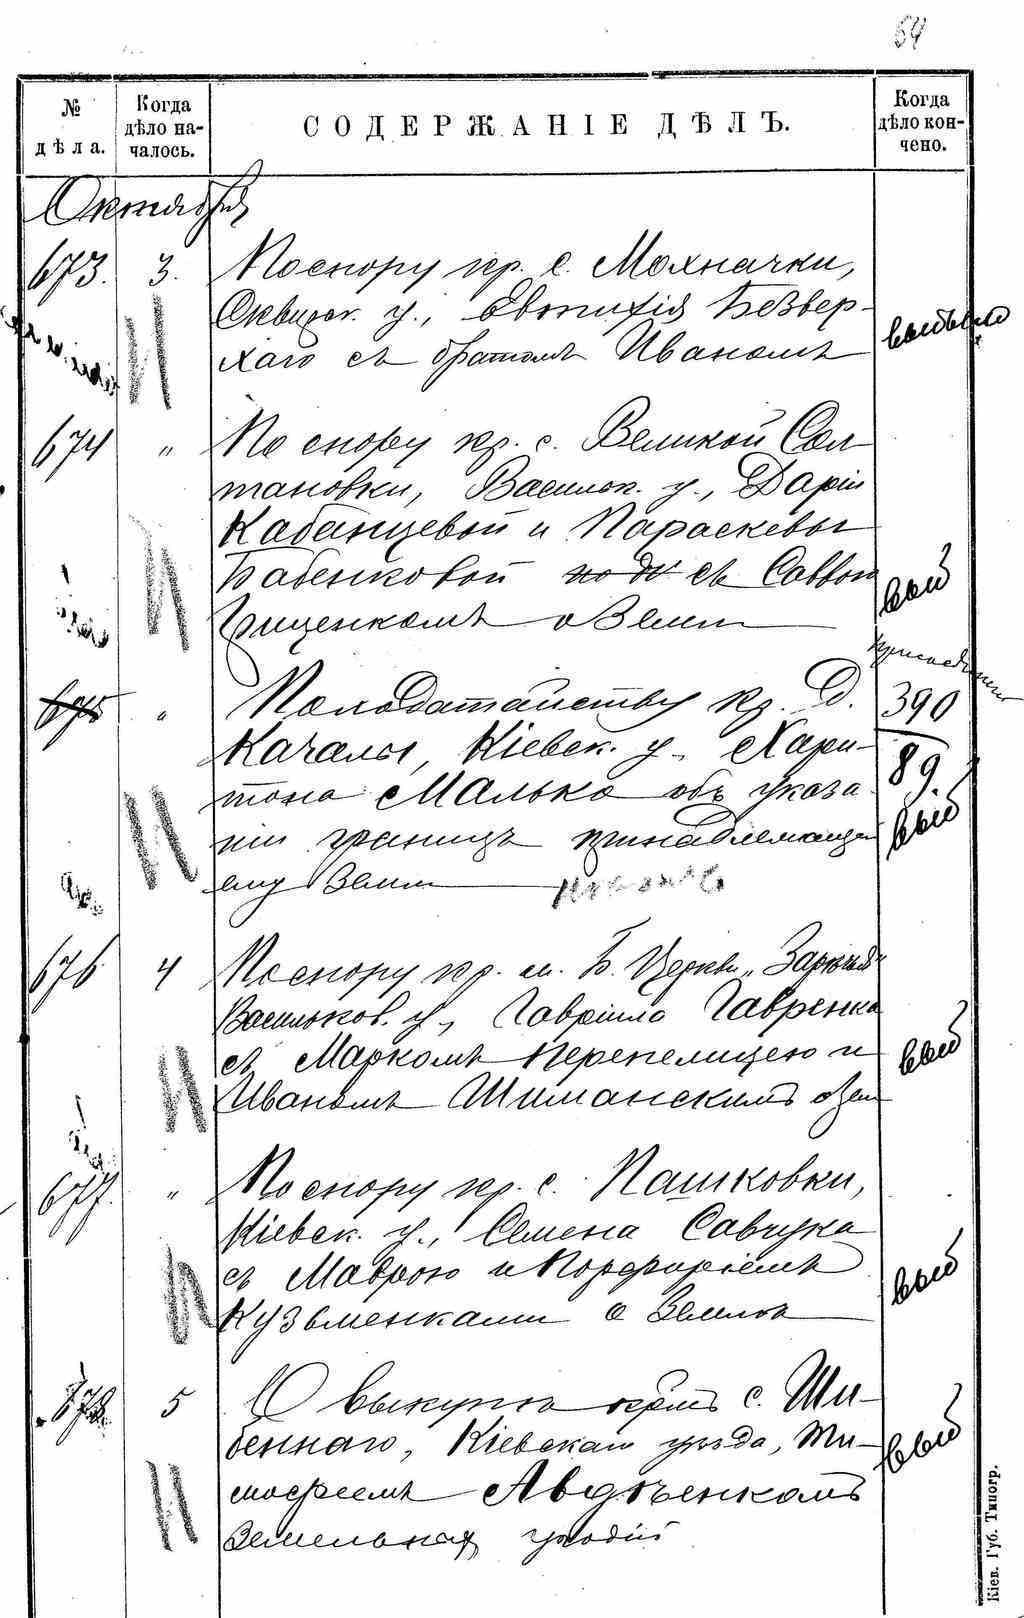 54
№ дѣла.
Когда дѣло началось.
СОДЕРЖАНІЕ ДѢЛЪ.
Когда дѣло кончено.
Октября
673. 3. По спору кр. с. Мохначки,
Сквирск. у., Евтихія Безвер-
хаго съ братомъ Иваномъ
674 " По спору кр. с. Великой Сол
тановки, Васильк. у., Даріи
Кабанцевой и Параскевы
Бабенковой съ Саввою
Гриценкомъ о земли
выб
675 " По ходатайству кр. д.
Качалы, Кіевск. у., Хари-
тона Малька объ указа
ніи границъ принадлежащей
ему земли
присоединено
390
89.
выб
676 4 По спору кр. м. Б. Церкви „Заречья"
Васильков. у., Гавріила Гавренка
съ Маркомъ Перепелицею и
Иваномъ Шиманскимъ о зем
выб
677. " По спору кр. с. Пашковки,
Кіевск. у., Семена Савчука
съ Маврою и Порфиріемъ
Кузьменками о землѣ
выб
678. 5 О выкупѣ крѣст с. Ши-
беннаго, Кіевскаго уѣзда, Ти-
мофеемъ Авдѣенкомъ
земельныхъ угодій
выб
Кіев. Губ. Типогр.